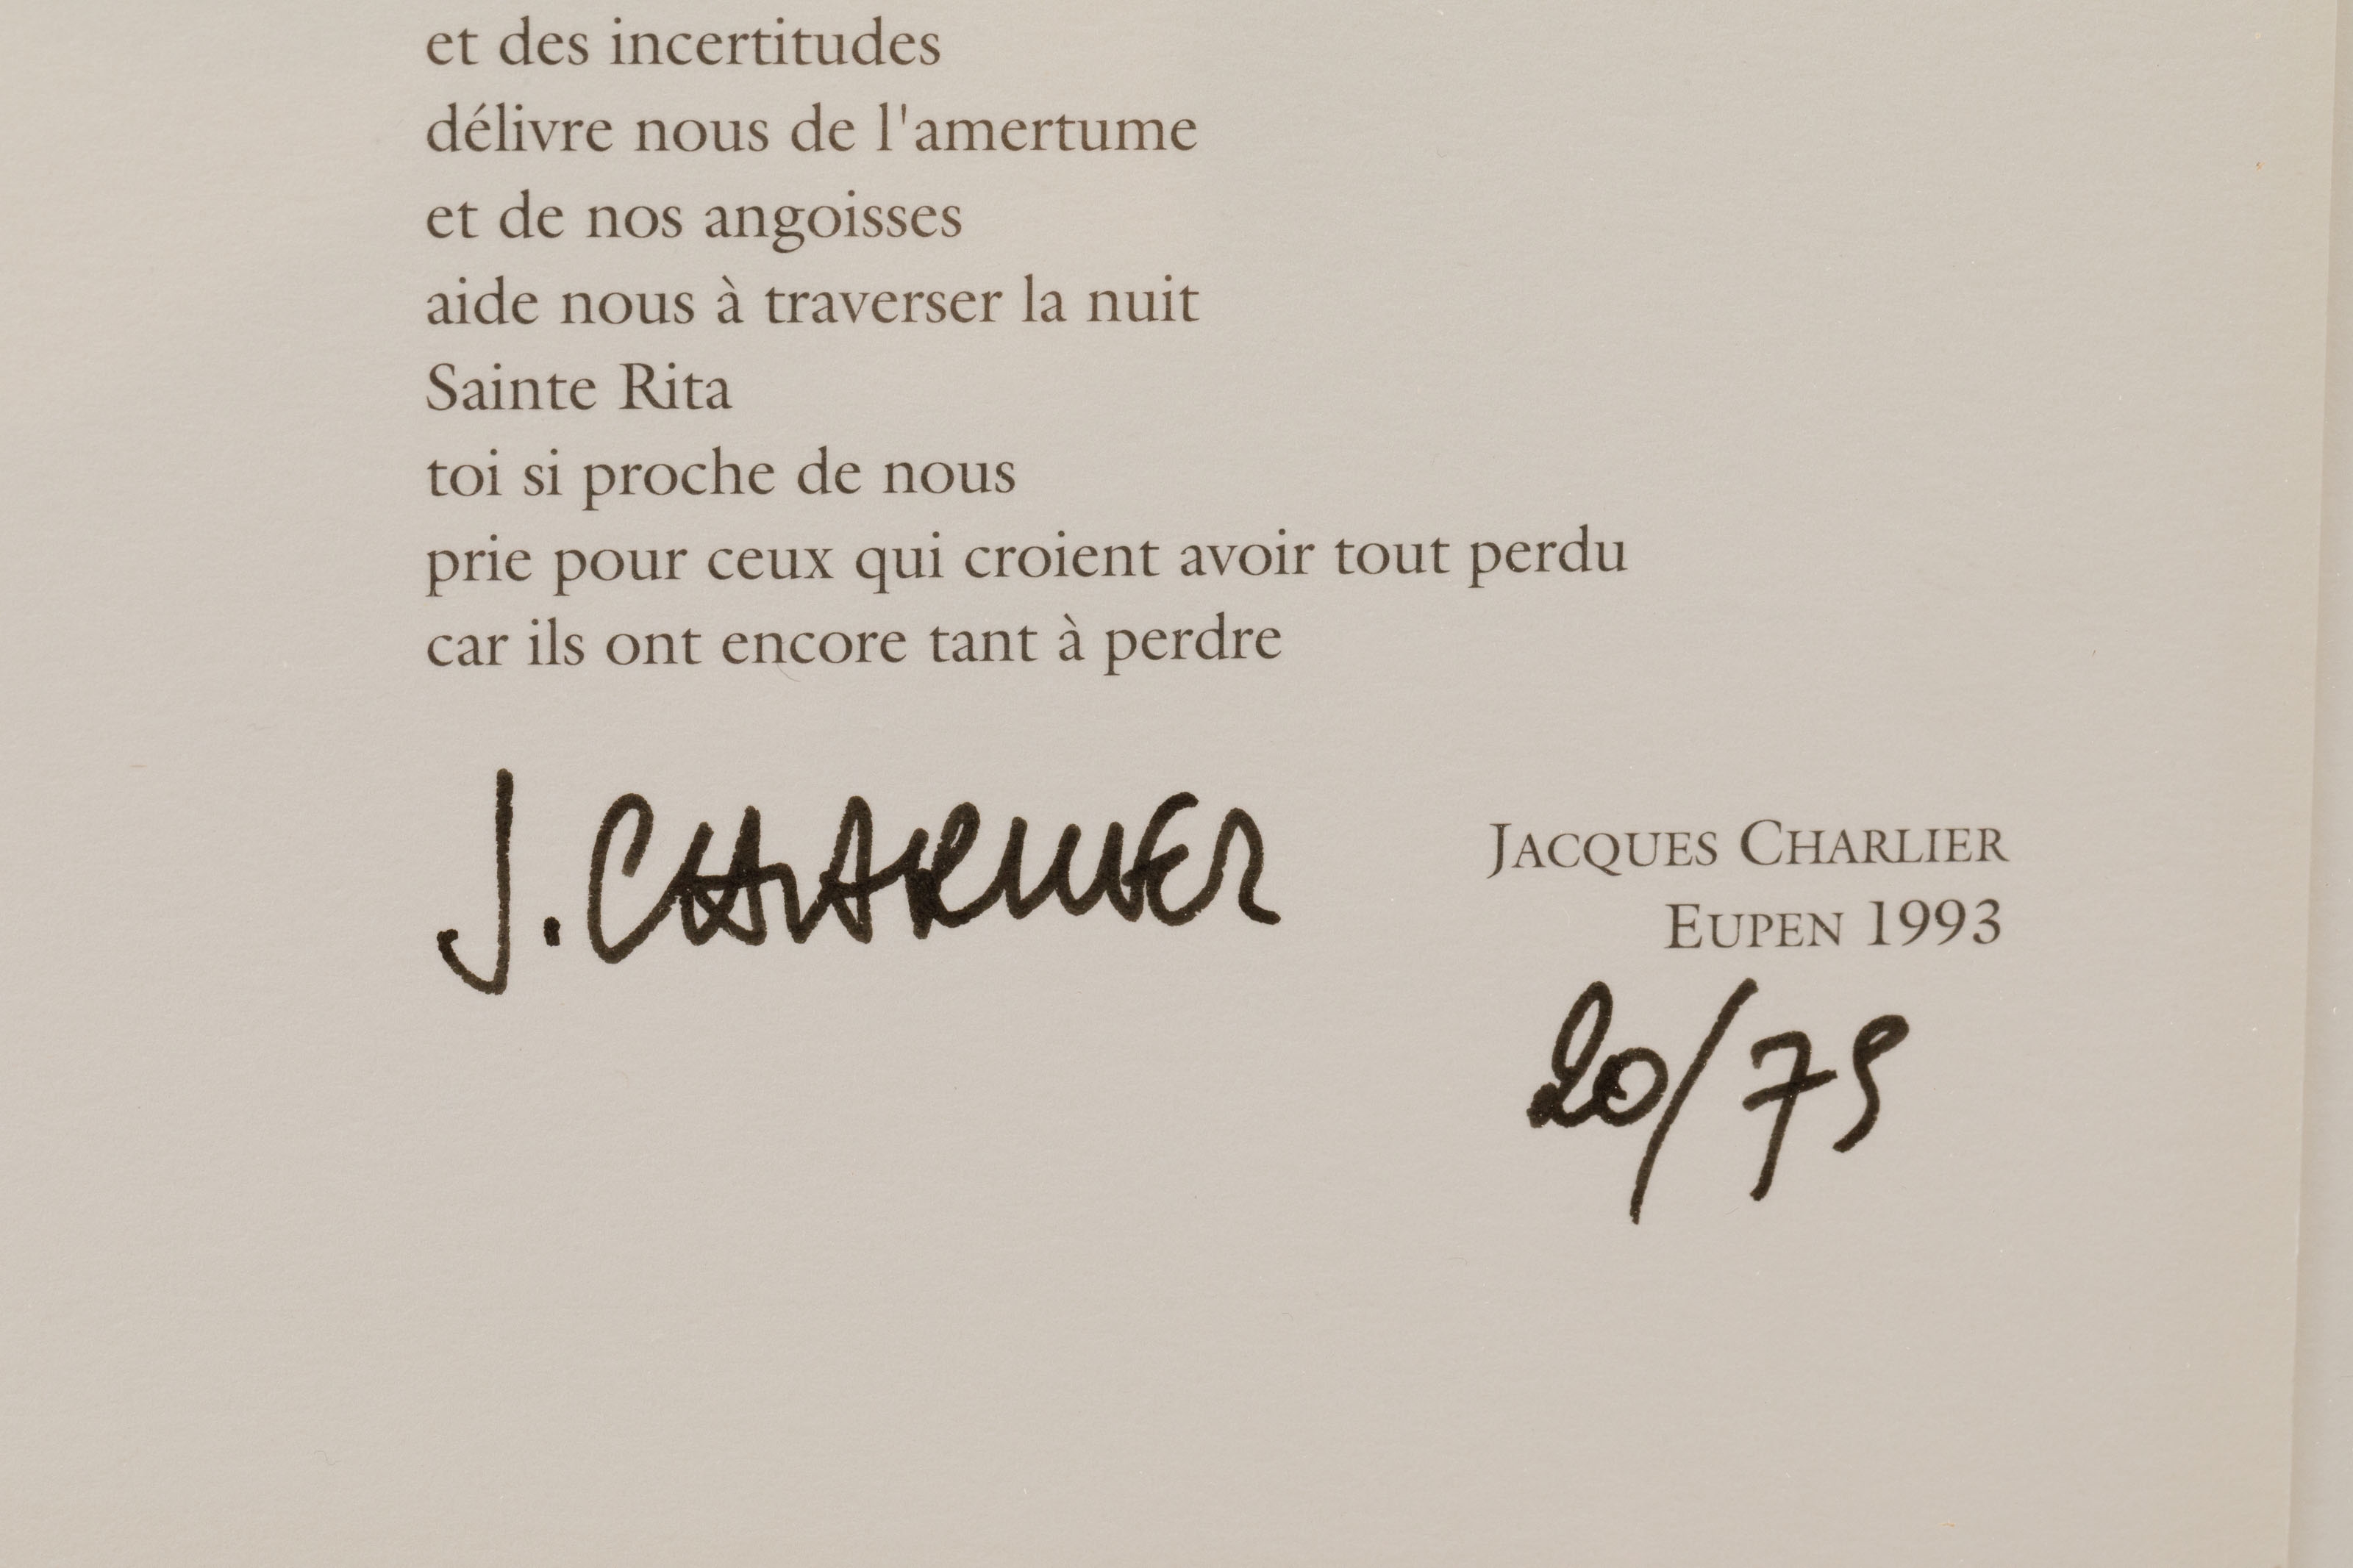 et des incertitudes
délivre nous de l'amertume
et de nos angoisses
aide nous à traverser la nuit
Sainte Rita
toi si proche de nous
prie pour ceux qui croient avoir tout perdu
car ils ont encore tant à perdre
J. CHARLIER
JACQUES CHARLIER
EUPEN 1993
20/75